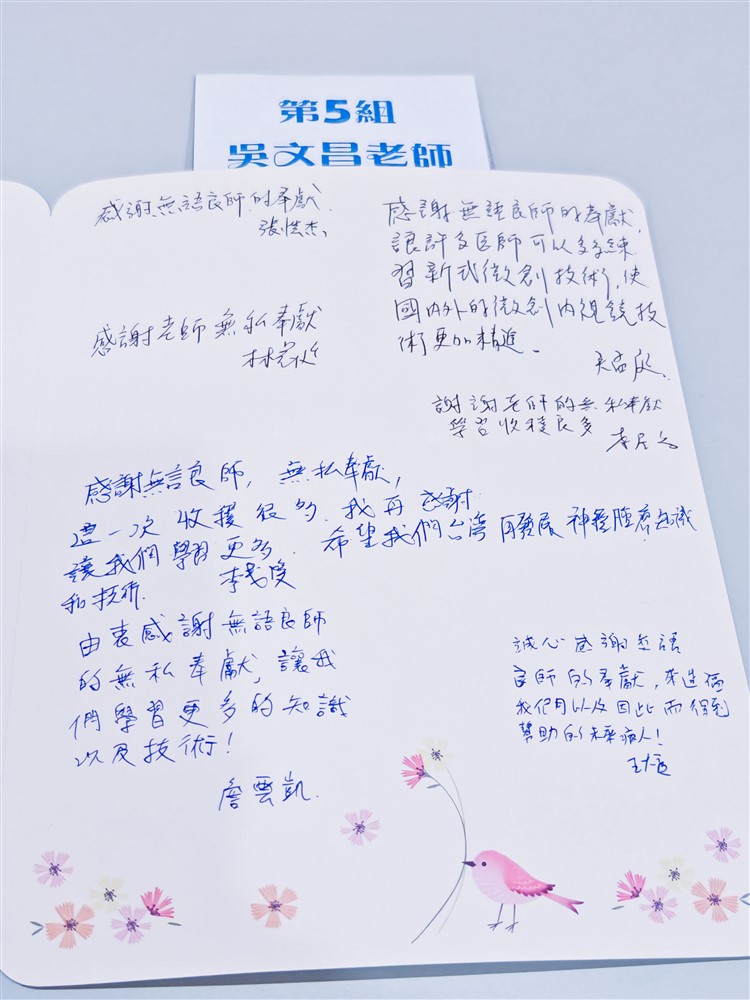 第5組
吳文昌老師
感謝無語良師的奉獻.
張
感謝老師無私奉獻
林
感謝無語良師的奉獻,
讓許多医師可以多多練
習新式微創技術,使
國內外的微創內視鏡技
術更加精進。
謝謝老師的無私奉獻
學習收穫良多
李
感謝無語良師, 無私奉獻,
這一次 收獲很多. 我再 感謝
讓我們學習更多. 希望我們台灣 發展 神經腫瘤知識
和技術.
李
由衷感謝無語良師
的無私奉獻, 讓我
們學習更多的知識
以及技術!
詹雲凱.
誠心感謝無語
良師的奉獻, 來造福
我們以及因此而得到
幫助的未來病人!
王